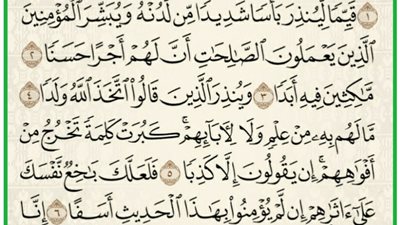 ١ قَيِّمًا لِّيُنذِرَ بَأْسًا شَدِيدًا مِّن لَّدُنْهُ وَيُبَشِّرَ الْمُؤْمِنِينَ
الَّذِينَ يَعْمَلُونَ الصَّالِحَاتِ أَنَّ لَهُمْ أَجْرًا حَسَنًا ٢
مَّاكِثِينَ فِيهِ أَبَدًا ٣ وَيُنذِرَ الَّذِينَ قَالُوا اتَّخَذَ اللَّهُ وَلَدًا ٤
مَّا لَهُم بِهِۦ مِنْ عِلْمٍ وَلَا لِآبَائِهِمْ ۚ كَبُرَتْ كَلِمَةً تَخْرُجُ مِنْ
أَفْوَاهِهِمْ ۚ إِن يَقُولُونَ إِلَّا كَذِبًا ٥ فَلَعَلَّكَ بَاخِعٌ نَّفْسَكَ
عَلَىٰ ءَاثَارِهِمْ إِن لَّمْ يُؤْمِنُوا بِهَٰذَا الْحَدِيثِ أَسَفًا ٦ إِنَّا